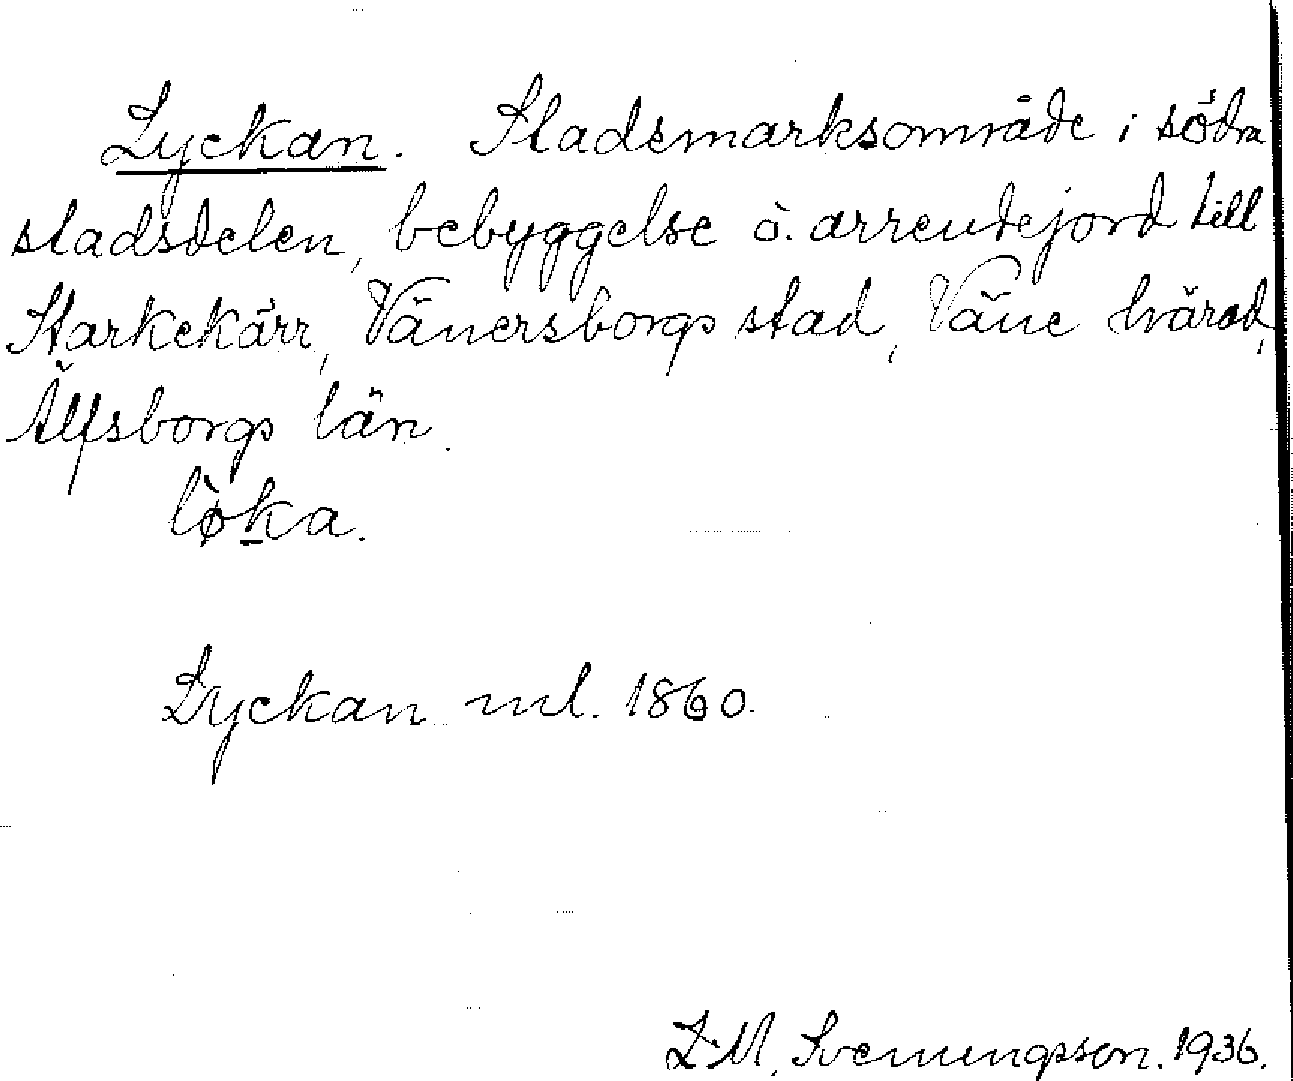 Lyckan. Stadsmarksområde i södra
stadsdelen, bebyggelse o. arrendejord till
Starkekärr, Vänersborgs stad, Väne härad,
Älfsborgs län.
lø̀ka.
Lyckan ml. 1860.
L.M. Svenungsson. 1936.